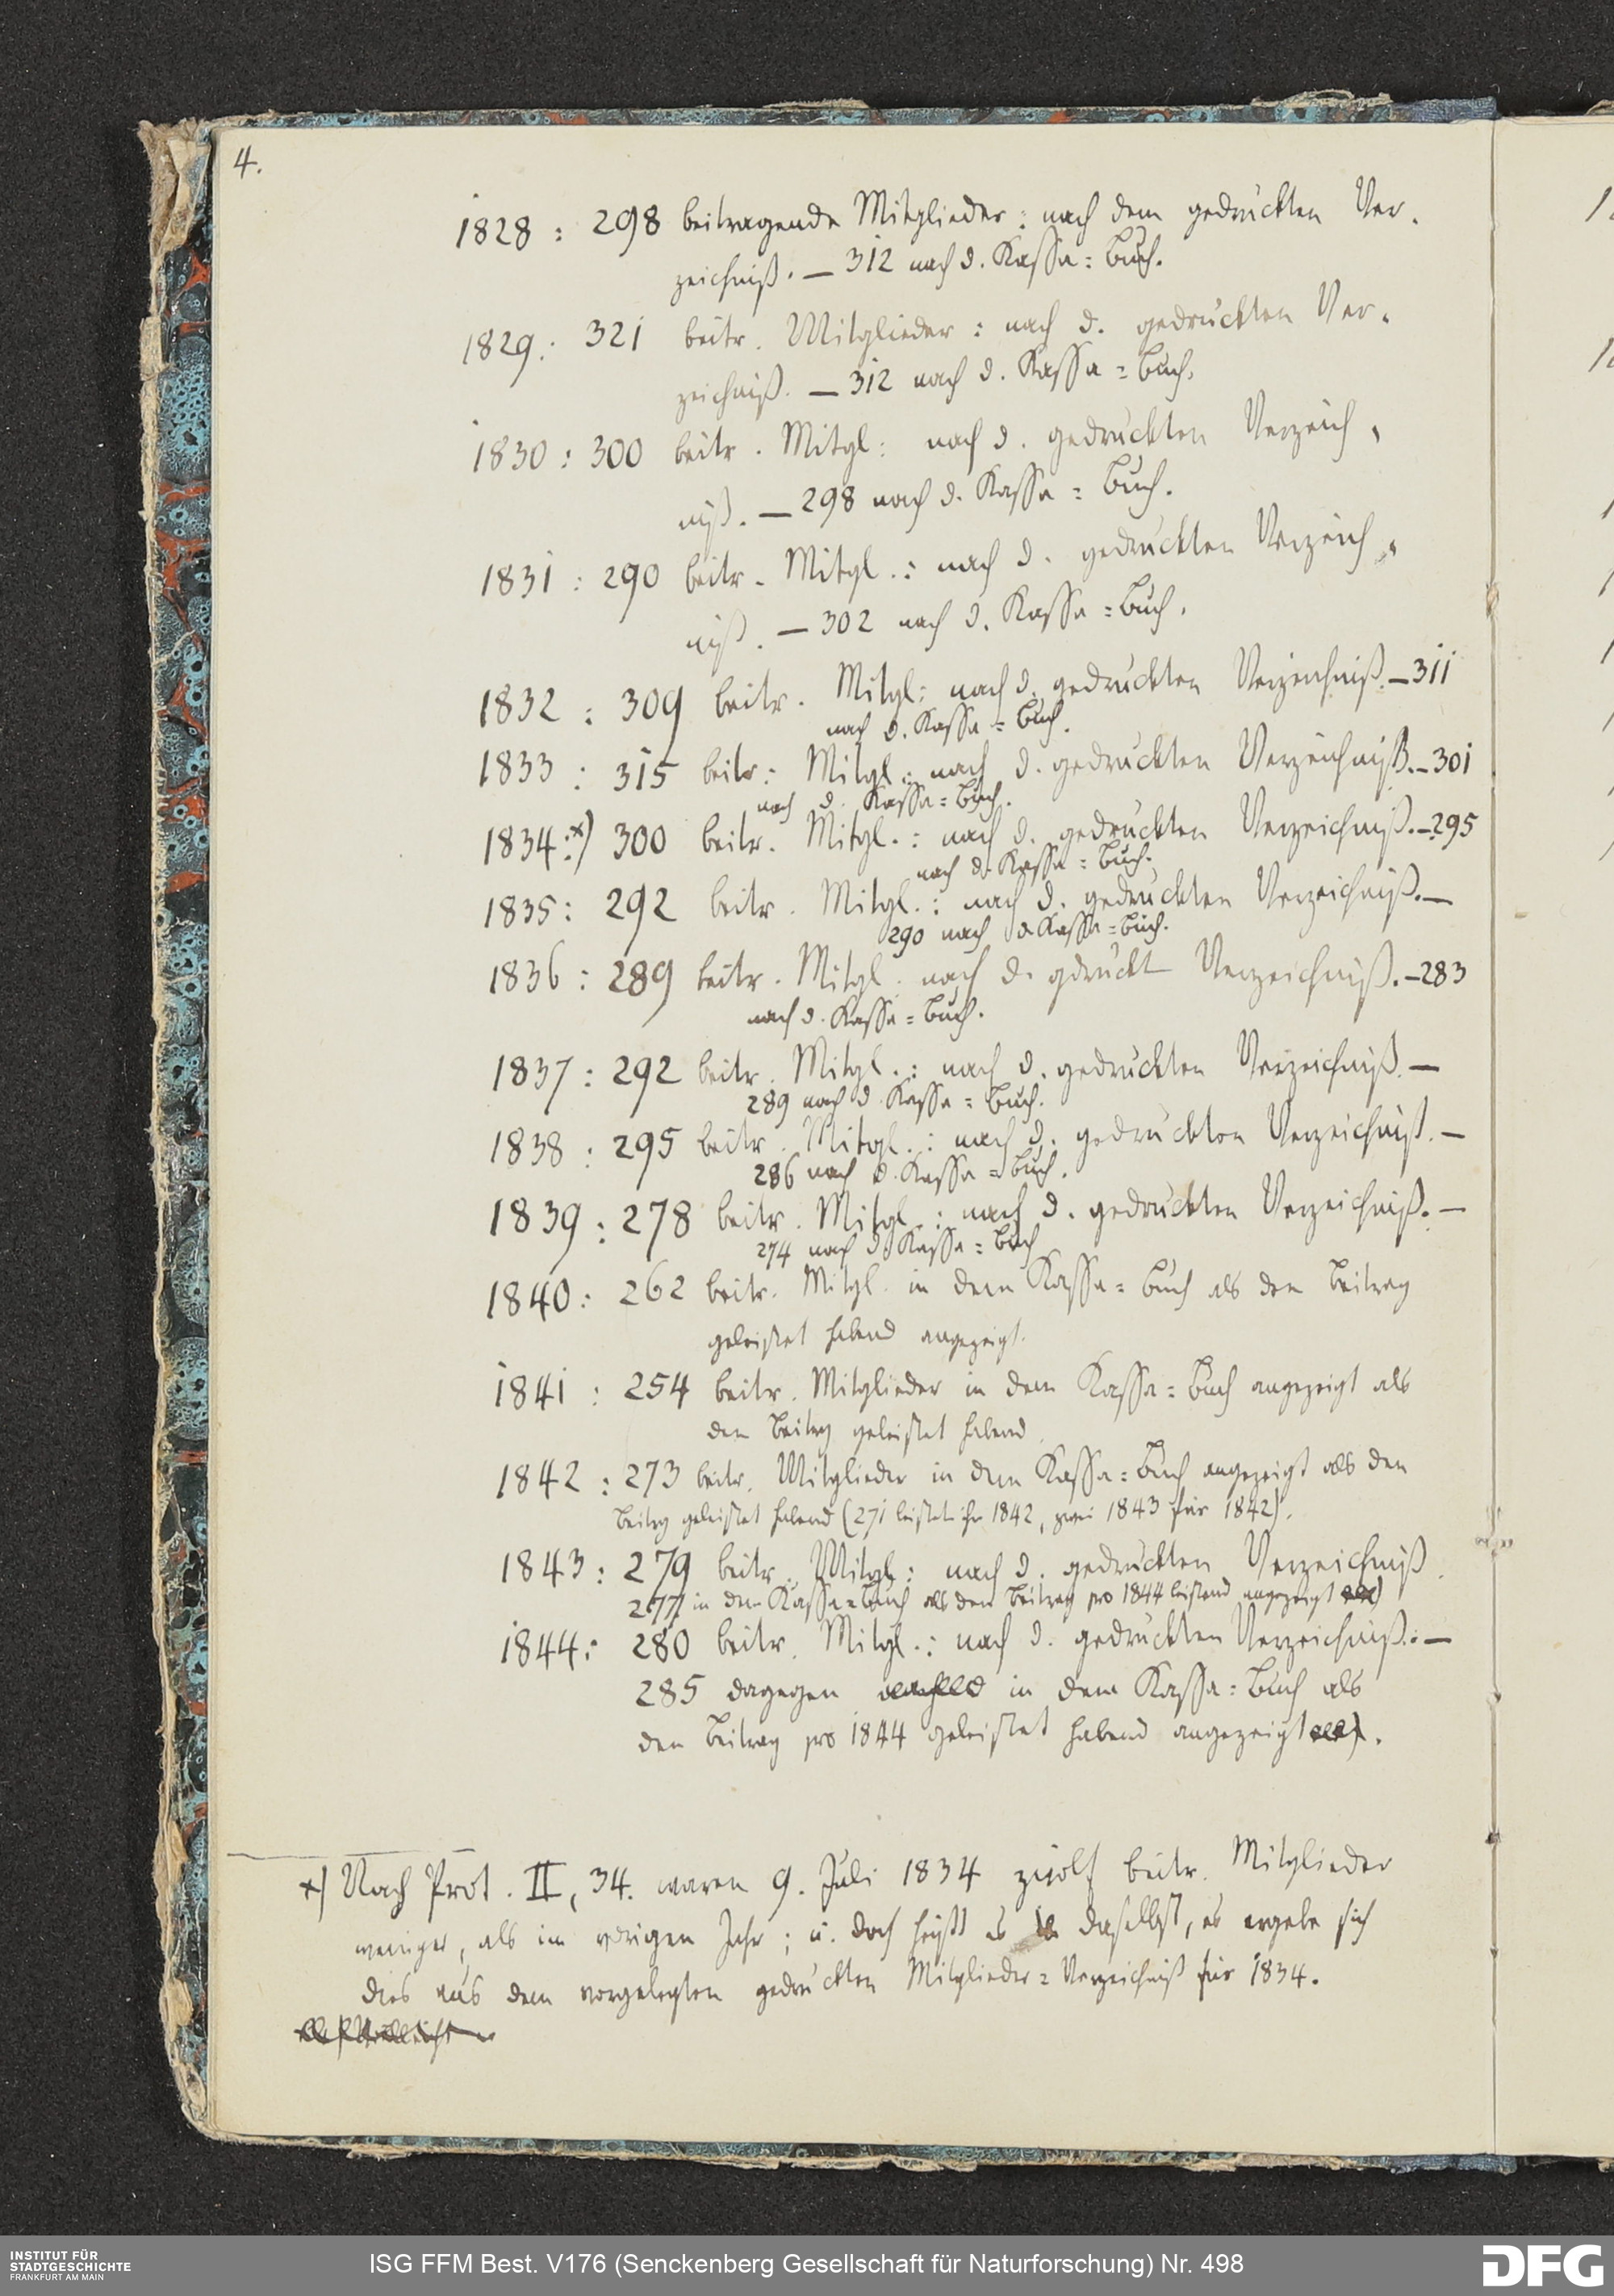 4.
1828 : 298 beitragende Mitglieder : nach dem gedruckten Ver-
zeichniß. — 312 nach d. Kassa = Buch.
1829 : 321 beitr. Mitglieder : nach d. gedruckten Ver-
zeichniß. — 312 nach d. Kassa = Buch.
1830 : 300 beitr. Mitgl : nach d. gedruckten Verzeich-
niß. — 298 nach d. Kassa = Buch.
1831 : 290 beitr. Mitgl. : nach d. gedruckten Verzeich-
niß. — 302 nach d. Kassa = Buch.
1832 : 309 beitr. Mitgl : nach d. gedruckten Verzeichniß. — 311
nach d. Kassa = Buch.
1833 : 315 beitr : Mitgl. : nach d. gedruckten Verzeichniß. — 301
nach d. Kassa = Buch.
1834 : *) 300 beitr. Mitgl. : nach d. gedruckten Verzeichniß. — 295
nach d. Kassa = Buch.
1835 : 292 beitr. Mitgl. : nach d. gedruckten Verzeichniß. —
290 nach d. Kassa = Buch.
1836 : 289 beitr. Mitgl. nach d. gdruckt Verzeichniß. — 283
nach d. Kassa = Buch.
1837 : 292 beitr. Mitgl. : nach d. gedruckten Verzeichniß. —
289 nach d. Kassa = Buch.
1838 : 295 beitr. Mitgl. : nach d. gedruckten Verzeichniß. —
286 nach d. Kassa = Buch.
1839 : 278 beitr. Mitgl. : nach d. gedruckten Verzeichniß. —
274 nach d. Kassa = Buch
1840 : 262 beitr. Mitgl. in dem Kassa = Buch als den Beitrag
geleistet habend angezeigt.
1841 : 254 beitr. Mitglieder in dem Kassa = Buch angezeigt als
den Beitrg geleistet habend.
1842 : 273 beitr. Mitglieder in dem Kassa = Buch angezeigt als den
Beitrg geleistet habend (271 leisteten ihn 1842, zwei 1843 für 1842).
1843 : 279 beitr. Mitgl : nach d. gedruckten Verzeichniß.
277 in dem Kassa = Buch als den Beitrag pro 1844 leistend angezeigt
1844 : 280 beitr. Mitgl. : nach d. gedruckten Verzeichniß. : —
285 dagegen in dem Kassa = Buch als
den Beitrag pro 1844 geleistet habend angezeigt.
*) Nach Prot. II, 34. waren 9. Juli 1834 zwölf beitr. Mitglieder
weniger, als im vorigen Jahr ; u. doch heißt es daselbst, es ergebe sich
dies aus dem vorgelegten gedruckten Mitglieder = Verzeichniß für 1834.
INSTITUT FÜR
STADTGESCHICHTE
FRANKFURT AM MAIN
ISG FFM Best. V176 (Senckenberg Gesellschaft für Naturforschung) Nr. 498
DFG